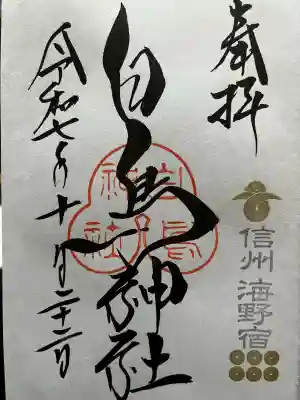 奉拝
信州 海野宿
白鳥神社
白鳥神社
令和七年十一月二十二日